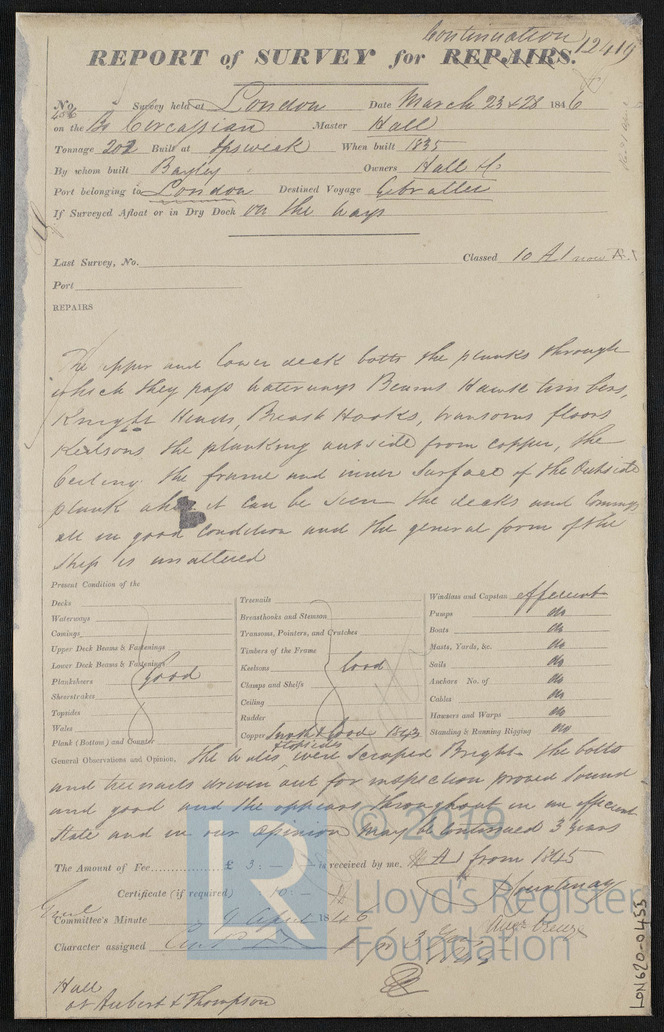 Continuation 12419
REPORT of SURVEY for REPAIRS.
No. 456 Survey held at London Date March 23 & 28 1846
on the Bk Circassian Master Hall
Tonnage 202 Built at Ipswich When built 1835
By whom built Bayley Owners Hall &c
Port belonging to London Destined Voyage Gibralter
If Surveyed Afloat or in Dry Dock on the ways
Last Survey, No. Classed 10 A1 now
Port
REPAIRS
The upper and lower deck bolts the planks through
which they pass waterways Beams Hawse timbers,
Knight Heads, Breast Hooks, transoms floors
Keelsons the planking outside from copper, the
Ceiling the frame and inner surface of the outside
plank where it can be seen the decks and Comings
all in good condition and the general form of the
Ship is unaltered
Present Condition of the
Decks
Waterways
Comings
Upper Deck Beams & Fastenings
Lower Deck Beams & Fastenings
Planksheers good
Sheerstrakes
Topsides
Wales
Plank (Bottom) and Counter
Treenails
Breasthooks and Stemson
Transoms, Pointers, and Crutches
Timbers of the Frame
Keelsons Good
Clamps and Shelfs
Ceiling
Rudder
Copper good 1843
Windlass and Capstan efficient
Pumps do
Boats do
Masts, Yards, &c. do
Sails do
Anchors No. of do
Cables do
Hawsers and Warps do
Standing & Running Rigging do
topsides
General Observations and Opinion, The Wales were scraped Bright the bolts
and treenails driven out for inspection proved sound
and good and she appears throughout in an efficient
State and in our opinion may be continued 3 years
The Amount of Fee £ 3 : — is received by me. A1 from 1845
Certificate (if required) 10 : —
Committee's Minute 9 April 1846
Character assigned A1 for 3 Years
1845
Hall
at Aubert & Thompson
LON620-0455
© 2019
LR
Lloyd's Register
Foundation